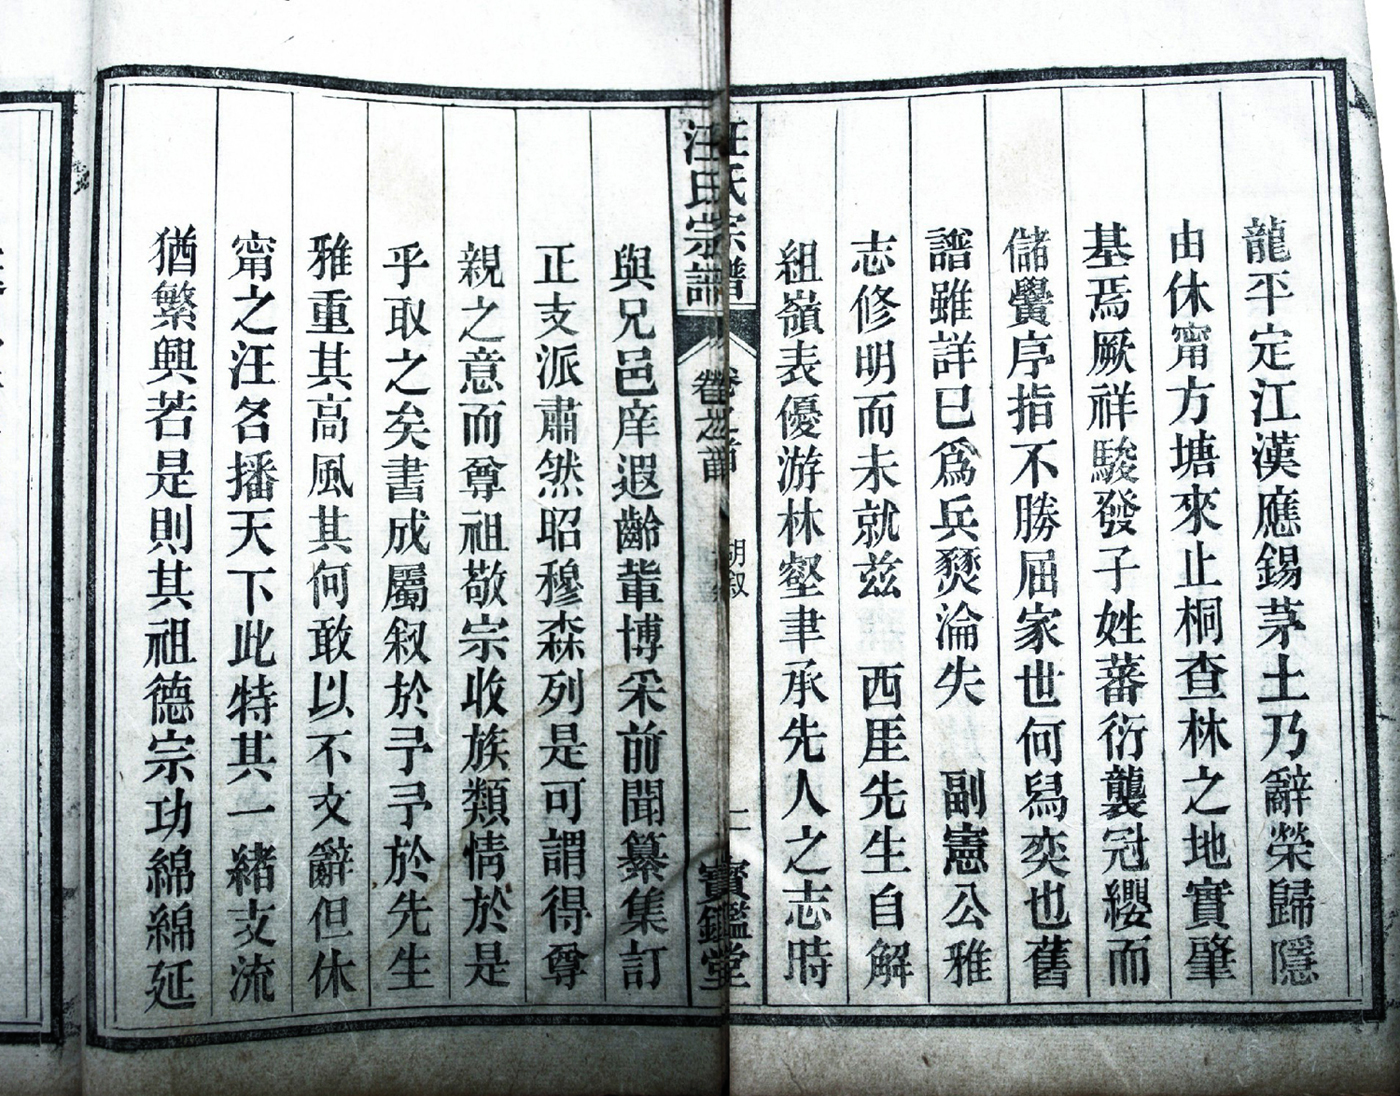 龍平定江漢應錫茅土乃辭榮歸隱
由休甯方塘來止桐查林之地實肇
基焉厥祥駿發子姓蕃衍襲冠纓而
儲黌序指不勝屈家世何舃奕也舊
譜雖詳已爲兵燹淪失 副憲公雅
志修明而未就茲 西厓先生自解
組嶺表優游林壑聿承先人之志時
汪氏宗譜 卷之首 胡叙 二 寶鑑堂
與兄邑庠遐齡輩博采前聞纂集訂
正支派肅然昭穆森列是可謂得尊
親之意而尊祖敬宗收族類情於是
乎取之矣書成屬叙於予予於先生
雅重其高風其何敢以不文辭但休
甯之汪各播天下此特其一緒支流
猶繁興若是則其祖德宗功綿綿延